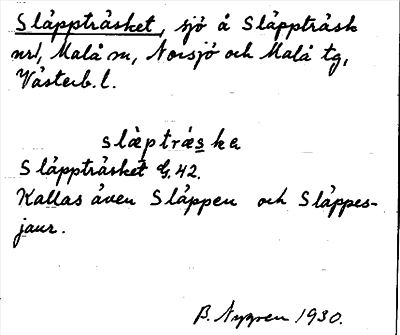 Släppträsket, sjö å Släppträsk
nr 1, Malå sn, Norsjö och Malå tg,
Västerb. l.
slæptræska
Släppträsket G. 42.
Kallas även Släppen och Släppes-
jaur.
B. Nygren 1930.